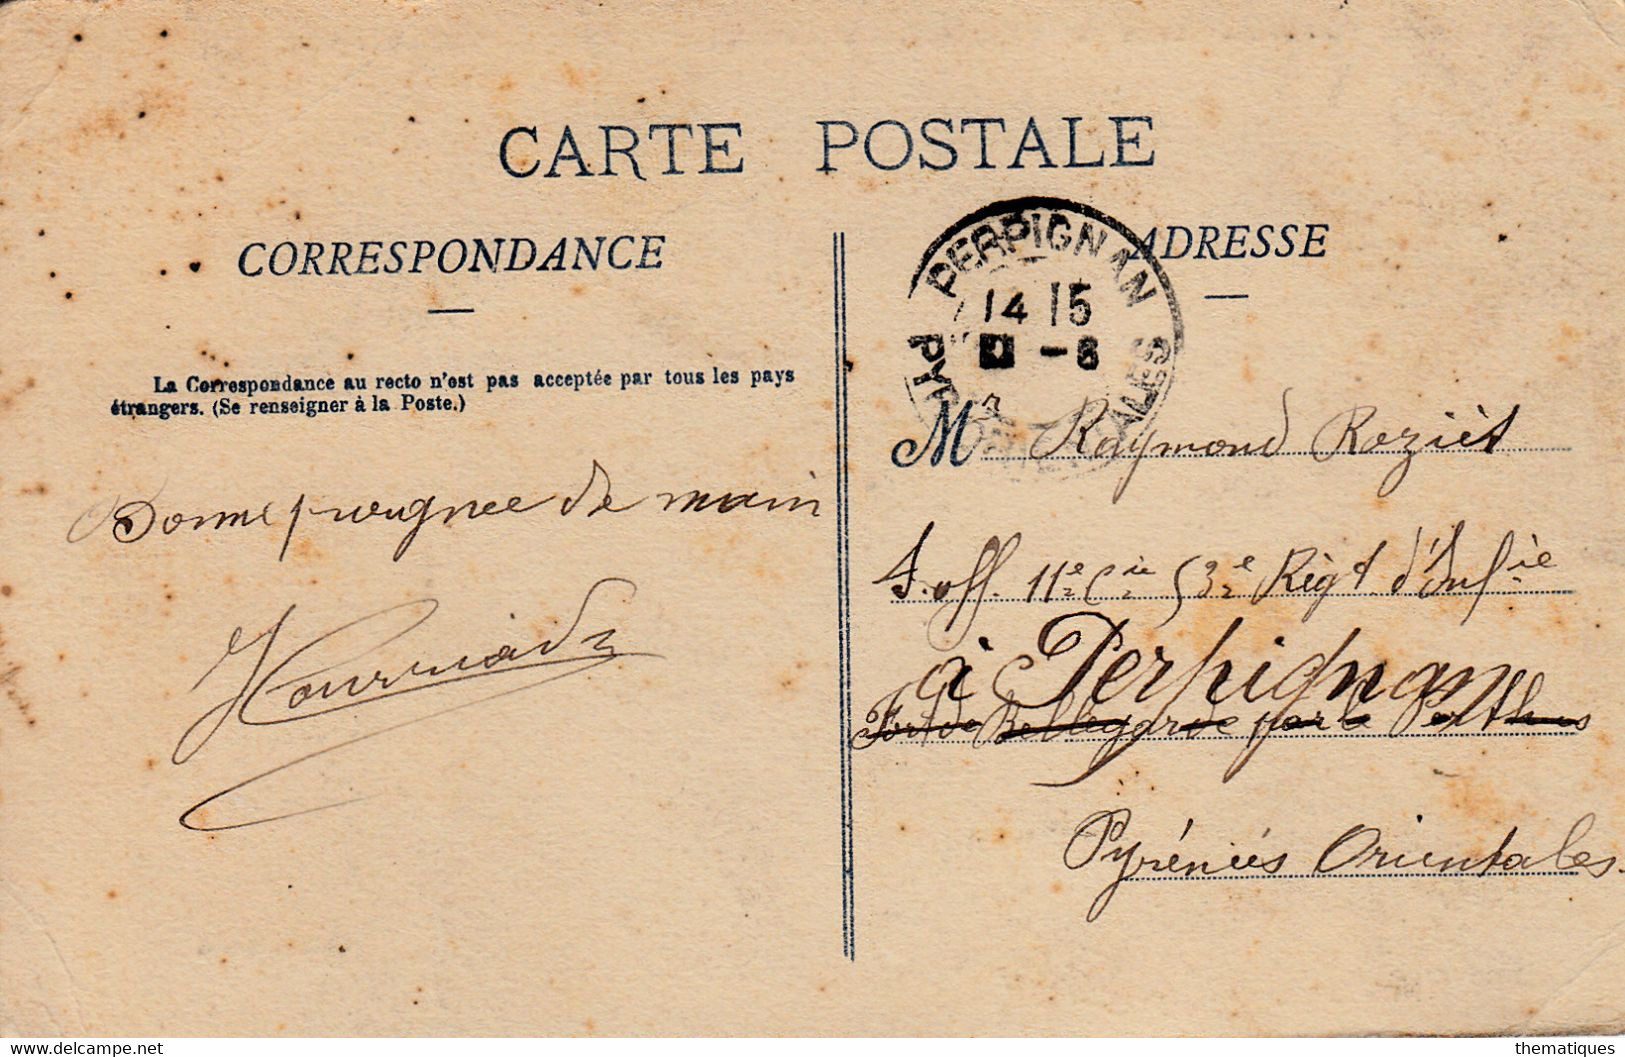 CARTE POSTALE
CORRESPONDANCE
La Correspondance au recto n'est pas acceptée par tous les pays
étrangers. (Se renseigner à la Poste.)
Bonne poignee de main
ADRESSE
PERPIGNAN
14 15
PYR ORIENTALES
Mr Raymond Rozièt
S.off. 11e Cie 53e Règt d'Infie
à Perpignan
Fort de Bellegarde par le Perthus
Pyrénées Orientales.
https://www.delcampe.net
thematiques